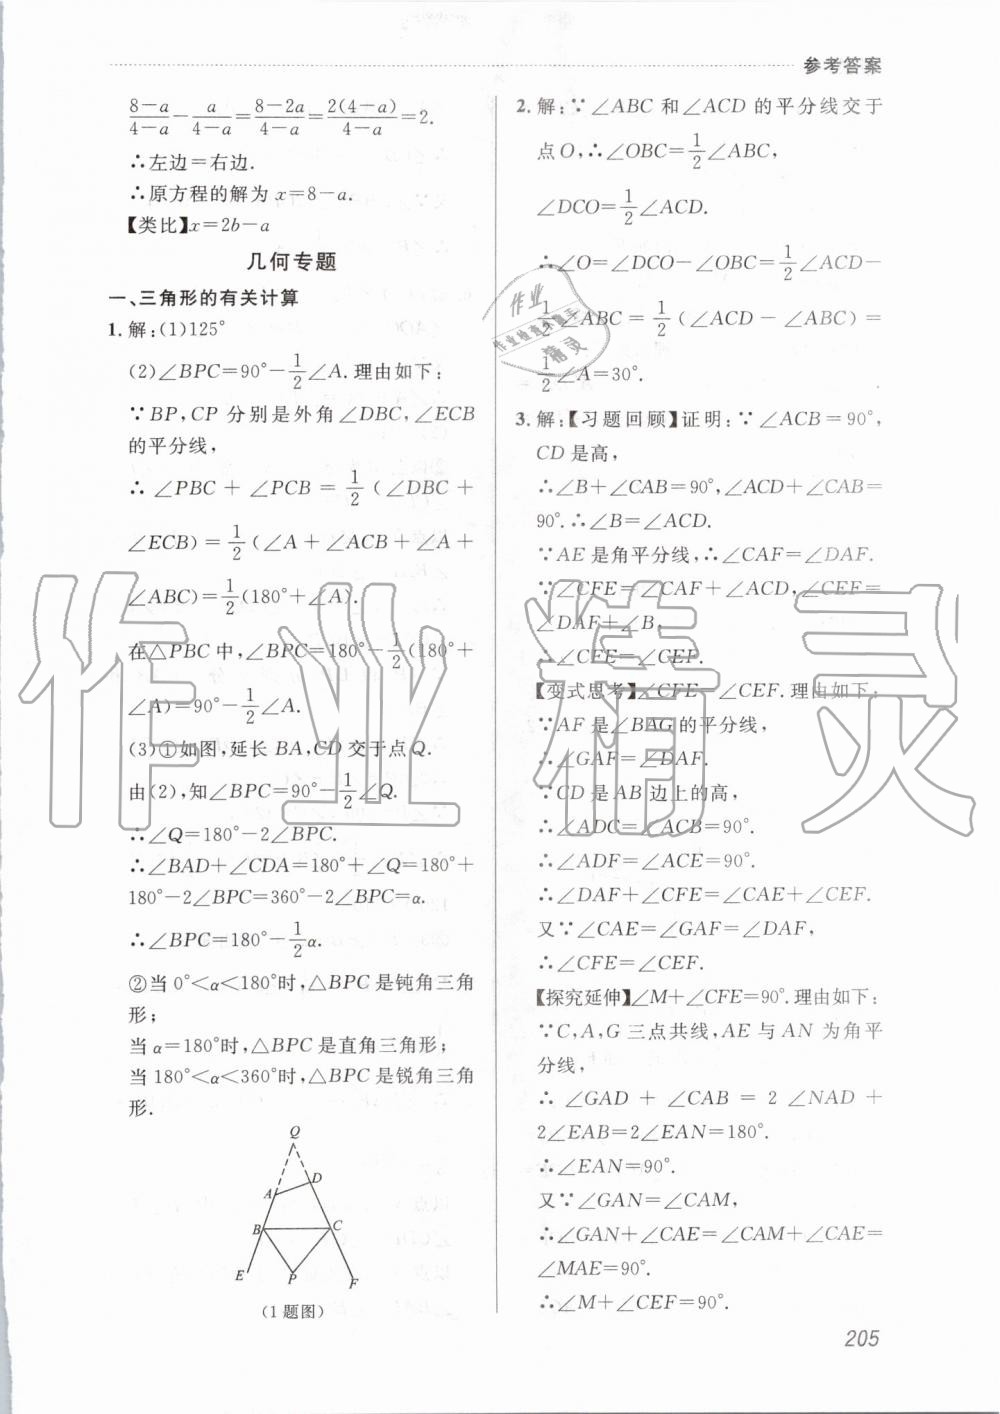 参考答案
\frac{8-a}{4-a}-\frac{a}{4-a}=\frac{8-2a}{4-a}=\frac{2(4-a)}{4-a}=2.
∴左边=右边.
∴原方程的解为 x=8-a.
【类比】x=2b-a
几何专题
一、三角形的有关计算
1.解:(1)125°
(2)∠BPC=90°-\frac{1}{2}∠A.理由如下:
∵BP,CP 分别是外角∠DBC,∠ECB
的平分线,
∴∠PBC+∠PCB=\frac{1}{2}(∠DBC+
∠ECB)=\frac{1}{2}(∠A+∠ACB+∠A+
∠ABC)=\frac{1}{2}(180°+∠A).
在△PBC 中,∠BPC=180°-\frac{1}{2}(180°+
∠A)=90°-\frac{1}{2}∠A.
(3)①如图,延长 BA,CD 交于点 Q.
由(2),知∠BPC=90°-\frac{1}{2}∠Q.
∴∠Q=180°-2∠BPC.
∴∠BAD+∠CDA=180°+∠Q=180°+
180°-2∠BPC=360°-2∠BPC=α.
∴∠BPC=180°-\frac{1}{2}α.
②当 0°<α<180°时,△BPC 是钝角三角
形;
当 α=180°时,△BPC 是直角三角形;
当 180°<α<360°时,△BPC 是锐角三角
形.
Q
A
D
B
C
E
P
F
(1题图)
2.解:∵∠ABC 和∠ACD 的平分线交于
点 O,∴∠OBC=\frac{1}{2}∠ABC,
∠DCO=\frac{1}{2}∠ACD.
∴∠O=∠DCO-∠OBC=\frac{1}{2}∠ACD-
\frac{1}{2}∠ABC=\frac{1}{2}(∠ACD-∠ABC)=
\frac{1}{2}∠A=30°.
3.解:【习题回顾】证明:∵∠ACB=90°,
CD 是高,
∴∠B+∠CAB=90°,∠ACD+∠CAB=
90°.∴∠B=∠ACD.
∵AE 是角平分线,∴∠CAF=∠DAF.
∵∠CFE=∠CAF+∠ACD,∠CEF=
∠DAF+∠B,
∴∠CFE=∠CEF.
【变式思考】∠CFE=∠CEF.理由如下:
∵AF 是∠BAG 的平分线,
∴∠GAF=∠DAF.
∵CD 是 AB 边上的高,
∴∠ADC=∠ACB=90°.
∴∠ADF=∠ACE=90°.
∴∠DAF+∠CFE=∠CAE+∠CEF.
又∵∠CAE=∠GAF=∠DAF,
∴∠CFE=∠CEF.
【探究延伸】∠M+∠CFE=90°.理由如下:
∵C,A,G 三点共线,AE 与 AN 为角平
分线,
∴∠GAD+∠CAB=2∠NAD+
2∠EAB=2∠EAN=180°.
∴∠EAN=90°.
又∵∠GAN=∠CAM,
∴∠GAN+∠CAE=∠CAM+∠CAE=
∠MAE=90°.
∴∠M+∠CEF=90°.
205
作业精灵
作业
精灵